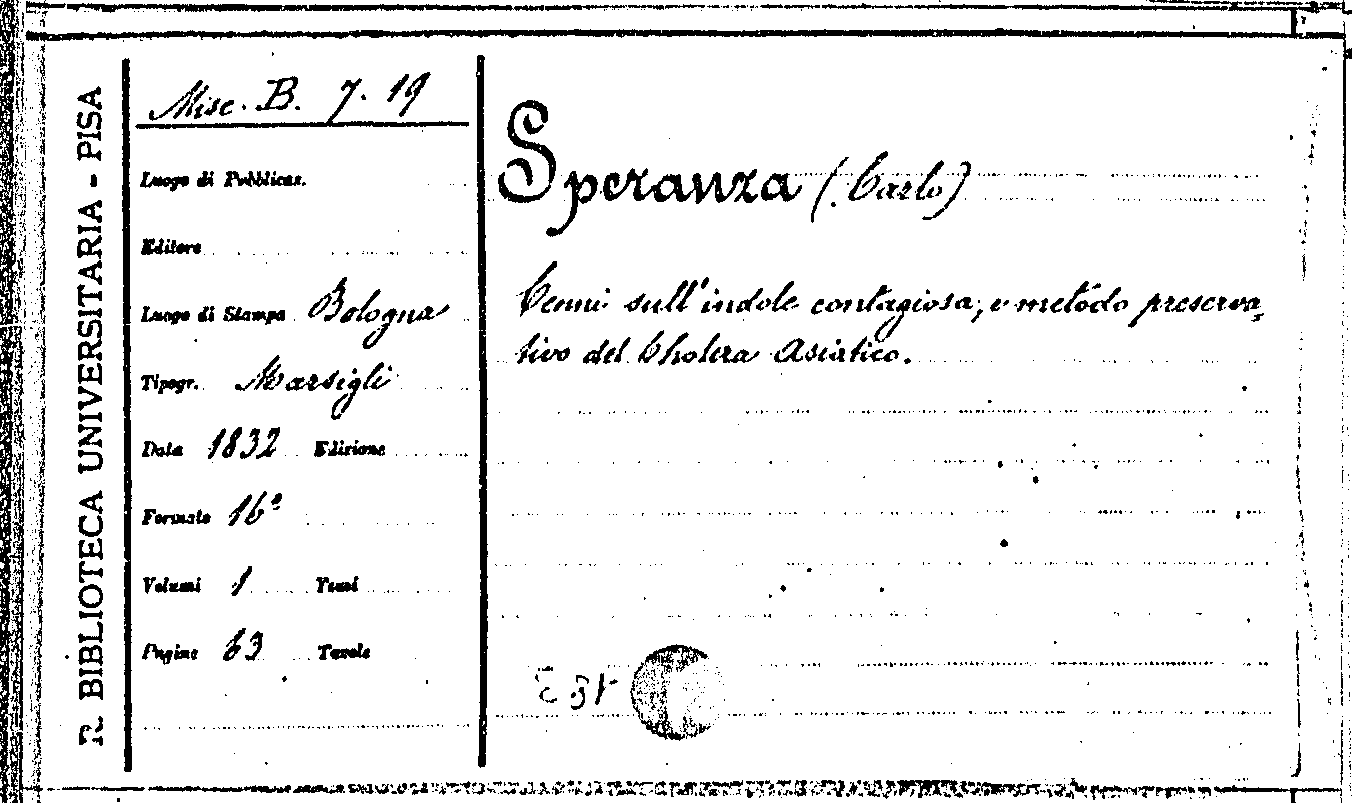 R. BIBLIOTECA UNIVERSITARIA - PISA
Misc. B. 7. 19
Luogo di Pubblicas.
Editore
Luogo di Stampa Bologna
Tipogr. Marsigli
Data 1832 Edizione
Formato 16°
Volumi 1 Tomi
Pagine 63 Tavole
Speranza (Carlo)
Cenni sull'indole contagiosa, e metodo preserva-
tivo del Cholera Asiatico.